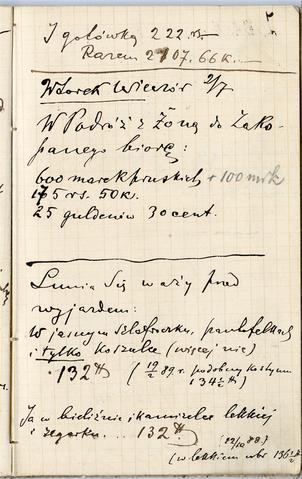 I gotówką 222. rs
Razem 2107. 66 k.
Wtorek wieczór 2/7
W Podróż z Żoną do Zako-
panego biorę:
600 marek pruskich + 100 mrk
175 rs. 50 k.
25 guldenów 30 cent.
Lunia Się waży przed
wyjazdem:
w jasnym szlafroczku, pantofelkach
i tylko koszulce (więcej nic)
132 ℔ (19/2 89. r. podobny kostyum
134 1/2 ℔)
Ja w bieliźnie i kamizelce lekkiej
i zegarku... 132 ℔
(w lekkim ubr 136